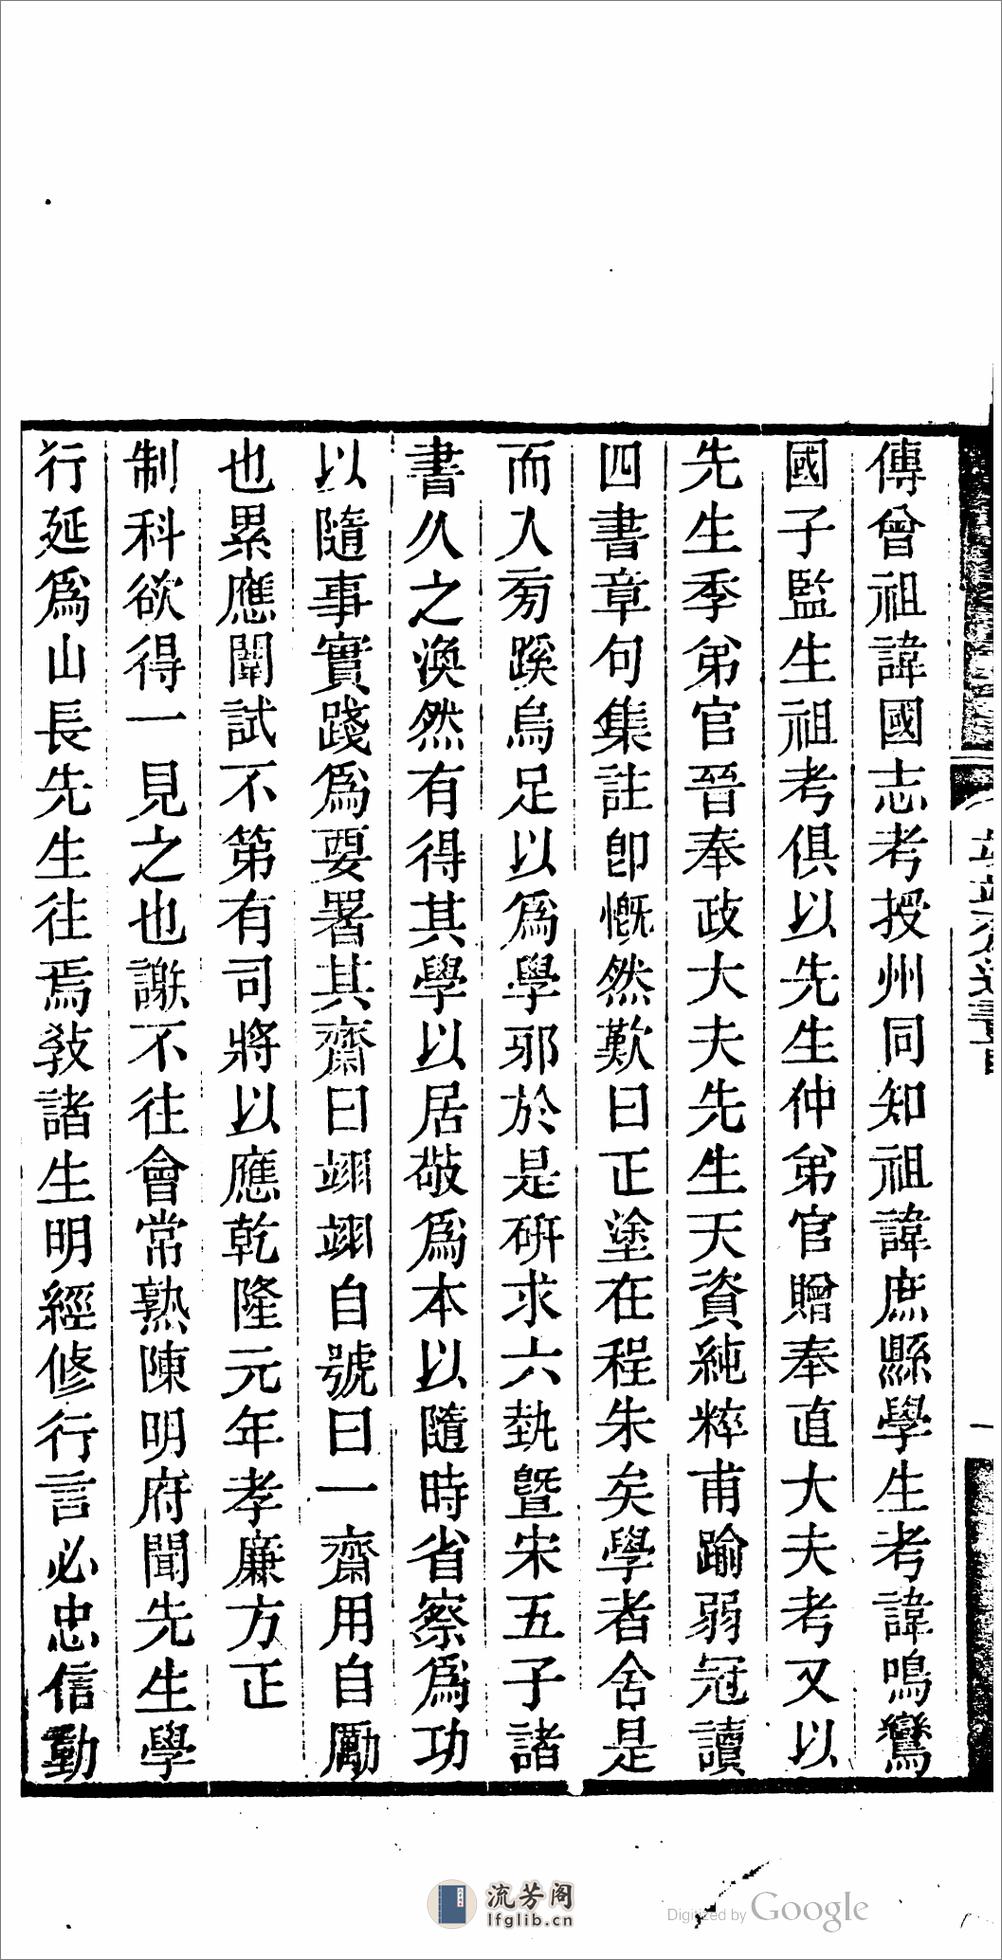 傳曾祖諱國志考授州同知祖諱庶縣學生考諱鳴鸞
國子監生祖考俱以先生仲弟官贈奉直大夫考又以
先生季弟官晉奉政大夫先生天資純粹甫踰弱冠讀
四書章句集註卽慨然歎曰正塗在程朱矣學者舍是
而入旁蹊烏足以爲學邪於是硏求六埶暨宋五子諸
書久之渙然有得其學以居敬爲本以隨時省察爲功
以隨事實踐爲要署其齋曰翊翊自號曰一齋用自勵
也累應闈試不第有司將以應乾隆元年孝廉方正
制科欲得一見之也謝不往會常熟陳明府聞先生學
行延爲山長先生往焉敎諸生明經修行言必忠信勤
一
流芳阁
lfglib.cn
Digitized by Google